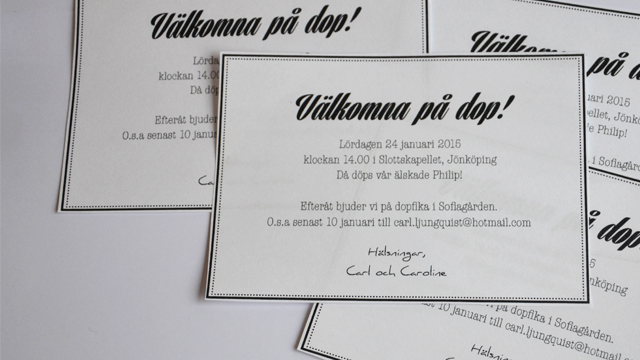 Välkomna på dop!
Lörda
klockan 14.00
Då döp
Efteråt bjuder
O.s.a senast 10 janua
Ca
Välkomna på dop!
Lördagen 24 januari 2015
klockan 14.00 i Slottskapellet, Jönköping
Då döps vår älskade Philip!
Efteråt bjuder vi på dopfika i Sofiagården.
O.s.a senast 10 januari till carl.ljungquist@hotmail.com
Hälsningar,
Carl och Caroline
Välkomna på d
uari 2015
pellet, Jönkö
e Philip!
i Sofiagård
å dop
5
nköping
vi på dopfika i Sofiagården.
nuari till carl.ljungquist@hotmail
Hälsning